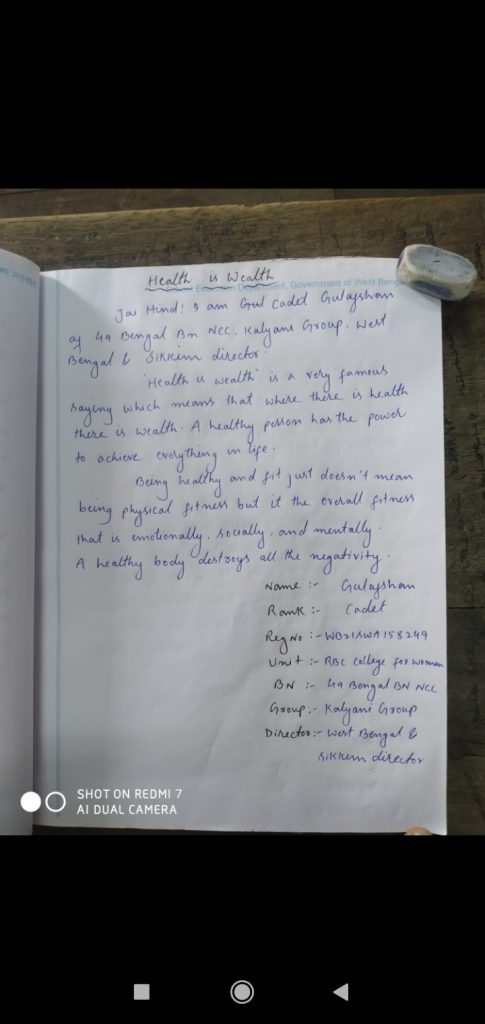 Health is Wealth
Education Department, Government of West Bengal
Jai Hind! I am Girl Cadet Gulafshan
of 49 Bengal Bn NCC, Kalyani Group, West
Bengal & Sikkim director.
'Health is wealth' is a very famous
saying which means that where there is health
there is wealth. A healthy person has the power
to achieve everything in life.
Being healthy and fit just doesn't mean
being physical fitness but it the overall fitness
that is emotionally, socially, and mentally.
A healthy body destroys all the negativity.
Name :- Gulafshan
Rank :- Cadet
Reg No :- WB21SWA158249
Unit :- RBC College for women
BN :- 49 Bengal BN NCC
Group :- Kalyani Group
Director :- West Bengal &
Sikkim director
SHOT ON REDMI 7
AI DUAL CAMERA